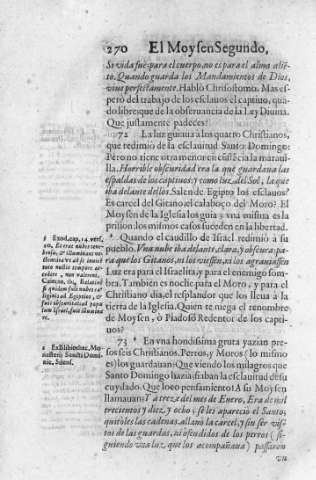 270 El Moysen Segundo,
Si vida fuè para el cuerpo, no es para el alma alie-
to. Quando guarda los Mandamientos de Dios,
vive perfectamente. Habló Chrisostomo. Mas es-
peró del trabajo de los esclavos el captivo, qua-
do libres que de la observancia de la Ley Divina.
Que justamente padeces?
72 La luz guiava a los quatro Christianos,
que redimiò de la esclavitud Santo Domingo:
Pero no tiene otra menor circunstācia la marauilla.
Horrible obscuridad era la que guardava las
espaldas de los captivos: y como luz del Sol, la que
iba delante dellos. Salen de Egipto los esclavos?
Es carcel del Gitano, el calaboço del Moro? El
Moysen de la Iglesia los guia y vna misma es la
prision: los mismos casos suceden en la libertad.
Quando el caudillo de Israel redimiò a su
pueblo. Vna nube iba delante, clara, y obscura: pa-
ra que los Gitanos, ni los viessen, ni los agraviassen
Luz era para el Israelita, y para el enemigo som-
bra. Tambien es noche para el Moro, y para el
Christiano dia, el resplandor que los lleua à la
tierra de la Iglesia. Quien te niega el renombre
de Moysen, ò Piadoso Redentor de los capti-
uos?
73 En vna hondissima gruta yazian pre-
sos seis Christianos. Perros, y Moros (lo mismo
es) los guardauan: Que viendo los milagros que
Santo Domingo hazia, fiaban la esclavitud de su
cuydado. Que loco pensamiento! A su Moysen
llamauan: Y a treze del mes de Enero, Era de mil
trecientos y diez, y ocho; se les apareciò el Santo,
quitòles las cadenas, allanò la carcel, y sin ser vis-
tos de las guardas, ni ofendidos de los perros (si-
guiendo viva luz, que los acompañava) passaron
Exod. cap. 14. vers.
20. Erat nubes tene-
brosa, & illuminans no-
ctem
Ex Bibliothec. Mo-
nasterij Sancti Domi-
nic. Silens.